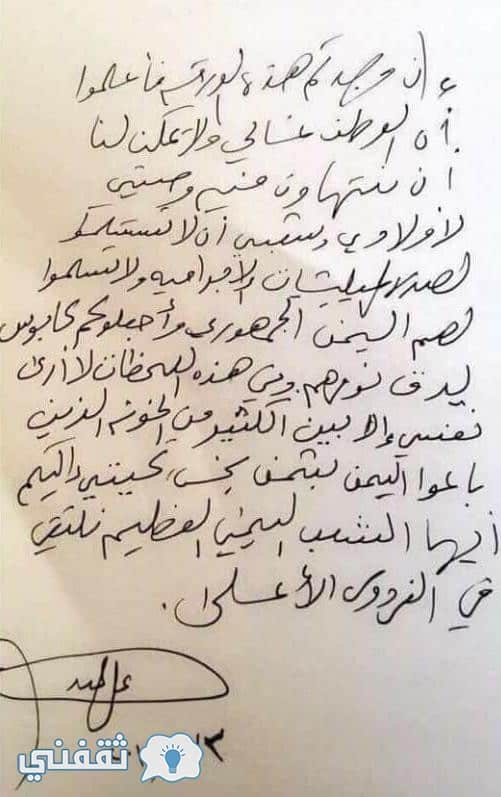 إن وجدتم هذه الورقه فأعلموا
أن الوطن غالي ولا يمكن لنا
أن نتهاون فيه وصيتي
لأولادي وشعبي أن لا تستسلمو
لهذه المليشيات الإجراميه ولا تسلموا
لهم اليمن الجمهوري وأجعلوكم كابوس
يدق نومهم وفي هذه اللحظات لا أرى
نفسي إلا بين الكثير من الخونه الذين
باعوا اليمن بثمن بخس تحيتي إليكم
أيها الشعب اليمني العظيم نلتقي
في الفردوس الأعلى.
ثقفني